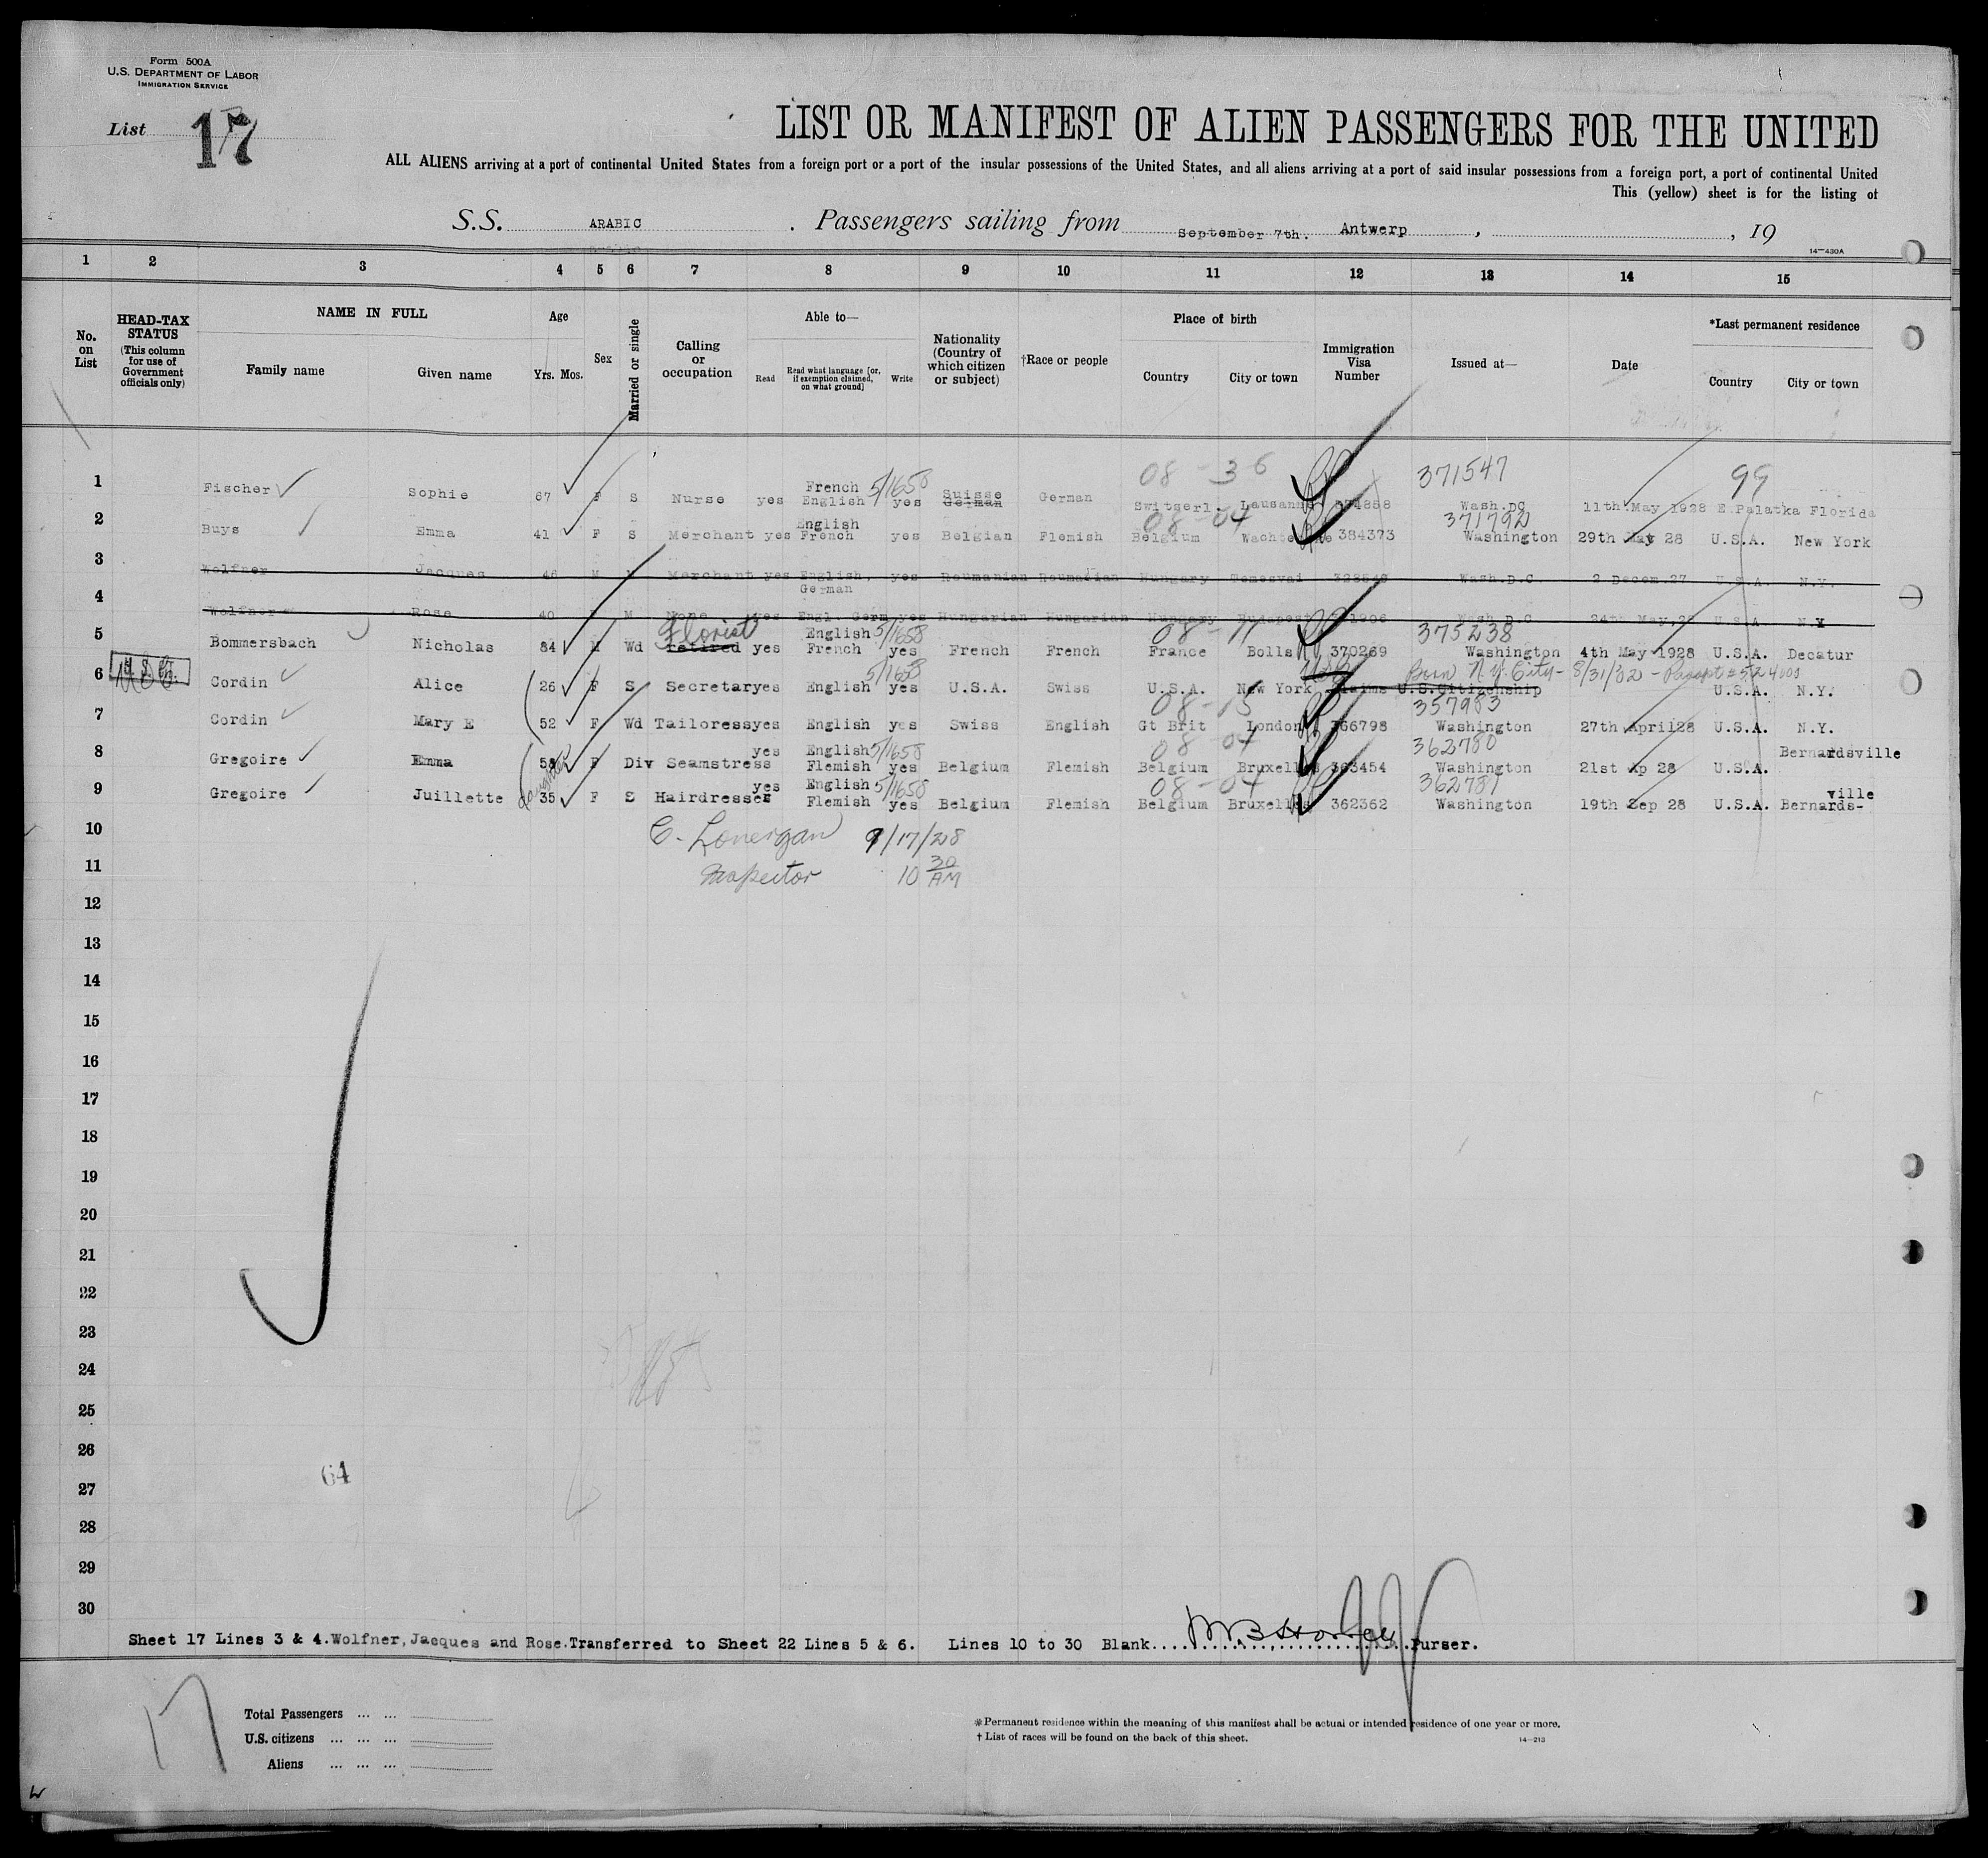 Form 500A
U.S. DEPARTMENT OF LABOR
IMMIGRATION SERVICE
List 17
LIST OR MANIFEST OF ALIEN PASSENGERS FOR THE UNITED
ALL ALIENS arriving at a port of continental United States from a foreign port or a port of the insular possessions of the United States, and all aliens arriving at a port of said insular possessions from a foreign port, a port of continental United
This (yellow) sheet is for the listing of
S.S. ARABIC. Passengers sailing from September 7th. Antwerp, , 19
14—430A
1 2 3 4 5 6 7 8 9 10 11 12 13 14 15
No. on List
HEAD-TAX STATUS (This column for use of Government officials only)
NAME IN FULL
Family name Given name
Age
Yrs. Mos.
Sex
Married or single
Calling or occupation
Able to—
Read Read what language [or, if exemption claimed, on what ground] Write
Nationality (Country of which citizen or subject)
†Race or people
Place of birth
Country City or town
Immigration Visa Number
Issued at—
Date
*Last permanent residence
Country City or town
08 - 36 371547 99
1 Fischer Sophie 67 F S Nurse yes French English 5/1658 yes Suisse German German Switserl. Lausanne Wash.DC 11th May 1928 E.Palatka Florida
08 - 04 371792
2 Buys Emma 41 F S Merchant yes English French yes Belgian Flemish Belgium 384373 Washington 29th May 28 U.S.A. New York
3 Wolfner Jacques 46 M M Merchant yes English, German yes Roumanian Roumanian Hungary Temesvai Wash.D.C 2 Decem 27 U.S.A. N.Y.
4 Wolfner Rose 40 F M None yes Engl. Germ yes Hungarian Hungarian Hungary Budapest Wash D.C 24th May, U.S.A. N.Y
Florist 5/1658 08 - 11 375238
5 Bommersbach Nicholas 84 M Wd retired yes English French yes French French France Bolls 370269 Washington 4th May 1928 U.S.A. Decatur
U.S.C. 5/1658 Born N.Y. City - 8/31/02 - Passpt # 524000
6 Cordin Alice 26 F S Secretaryes English yes U.S.A. Swiss U.S.A. New York Claims U.S.Citizenship U.S.A. N.Y.
08 - 15 357983
7 Cordin Mary E 52 F Wd Tailoressyes English yes Swiss English Gt Brit London 366798 Washington 27th April28 U.S.A. N.Y.
08 - 04 362780
8 Gregoire Emma 58 F Div Seamstress yes English Flemish 5/1658 yes Belgium Flemish Belgium Bruxelles 363454 Washington 21st Ap 28 U.S.A. Bernardsville
daughter 08 - 04 362781
9 Gregoire Juillette 35 F S Hairdresser yes English Flemish 5/1658 yes Belgium Flemish Belgium Bruxelles 362362 Washington 19th Sep 28 U.S.A. Bernards-ville
10 C. Lonergan 9/17/28
11 Inspector 10 30 AM
12
13
14
15
16
17
18
19
20
21
22
23
24
25
26
27 64
28
29
30
Sheet 17 Lines 3 & 4.Wolfner,Jacques and Rose.Transferred to Sheet 22 Lines 5 & 6. Lines 10 to 30 Blank. Purser.
17
Total Passengers ... ...
U.S. citizens ... ... ...
Aliens ... ... ...
*Permanent residence within the meaning of this manifest shall be actual or intended residence of one year or more.
†List of races will be found on the back of this sheet.
14—213